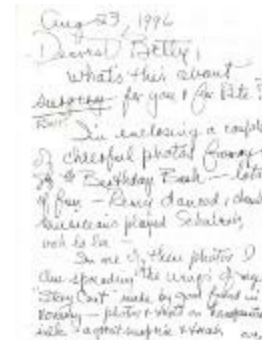 Aug 23, 1996
Dearest Betty,
What's this about
surgery for you & for Pete?
I'm enclosing a couple
of cheerful photos from
Birthday Bash — lots
of fun — Remy danced,
musicians played Schubert,
ooh la la —
In one of these photos I
am spreading the wings of my
"Story Coat" made by good friend in
Norway — photos & text on transparent
silk - a great surprise &
over